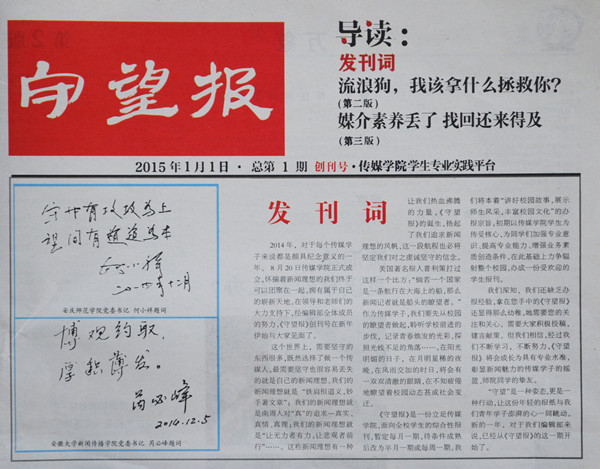 守望报
导读：
发刊词
流浪狗，我该拿什么拯救你？
(第二版)
媒介素养丢了 找回还来得及
(第三版)
2015年1月1日·总第1期 创刊号·传媒学院学生专业实践平台
安庆师范学院党委书记 何小祥题词
博观约取，
厚积薄发。
2014.12.5
安徽大学新闻传播学院党委书记 芮必峰题词
发刊词
2014年，对于每个传媒学
子来说都是颇具纪念意义的一
年。8月20日传媒学院正式成
立，怀揣着新闻理想的我们终于
可以团聚在一起，拥有属于自己
的崭新天地。在领导和老师们的
大力支持下，经编辑部全体成员
的努力，《守望报》创刊号在新年
伊始与大家见面了。
这个世界上，需要坚守的
东西很多，既然选择了做一个传
媒人，最需要坚守也很容易丢失
的就是自己的新闻理想。我们的
新闻理想就是“铁肩担道义，妙
手著文章”；我们的新闻理想就
是南周人对“真”的追求—真实、
真情、真理；我们的新闻理想就
是“让无力者有力，让悲观者前
行”……，这些新闻理想有一种
让我们热血沸腾
的力量，《守望
报》的诞生，扬起
了我们追求新闻
理想的风帆，这一段航程也必将
坚定我们对之虔诚坚守的信念。
美国著名报人普利策打过
这样一个比方：“倘若一个国家
是一条航行在大海上的船，那么
新闻记者就是船头的瞭望者。”
作为传媒学子，我们要先从校园
的瞭望者做起，聆听学校前进的
步伐，记录青春焕发的光彩，探
照光线不足的角落……，在阳光
明媚的日子，在月明星稀的夜
晚，在风雨交加的时日，将会有
一双双清澈的眼睛，在不知疲倦
地瞭望着校园动态甚或社会变
迁。
《守望报》是一份立足传媒
学院，面向全校学生的综合性报
刊，暂定每月一期，待条件成熟
后改为半月一期或每周一期。我
们将本着“讲好校园故事，展示
师生风采，丰富校园文化”的办
报宗旨，初期以传媒学院学生为
传受核心，为同学们加强专业意
识，提高专业能力，增强业务素
质创造条件，在此基础上力争辐
射整个校园，办成一份受欢迎的
学生报刊。
我们深知，我们还缺乏办
报经验，拿在您手中的《守望报》
还显得那么幼稚，她需要您的关
注和关心，需要大家积极投稿、
建言献策。但我们相信，经过我
们不断学习、不断努力，《守望
报》将会成长为具有专业水准，
彰显新闻魅力的传媒学子的摇
篮、师院同学的挚友。
“守望”是一种姿态，更是一
种行动，让这份年轻的报纸与我
们青年学子澎湃的心一同跳动，
新的一年，对于我们编辑部来
说，已经从《守望》的这一期开
始了！